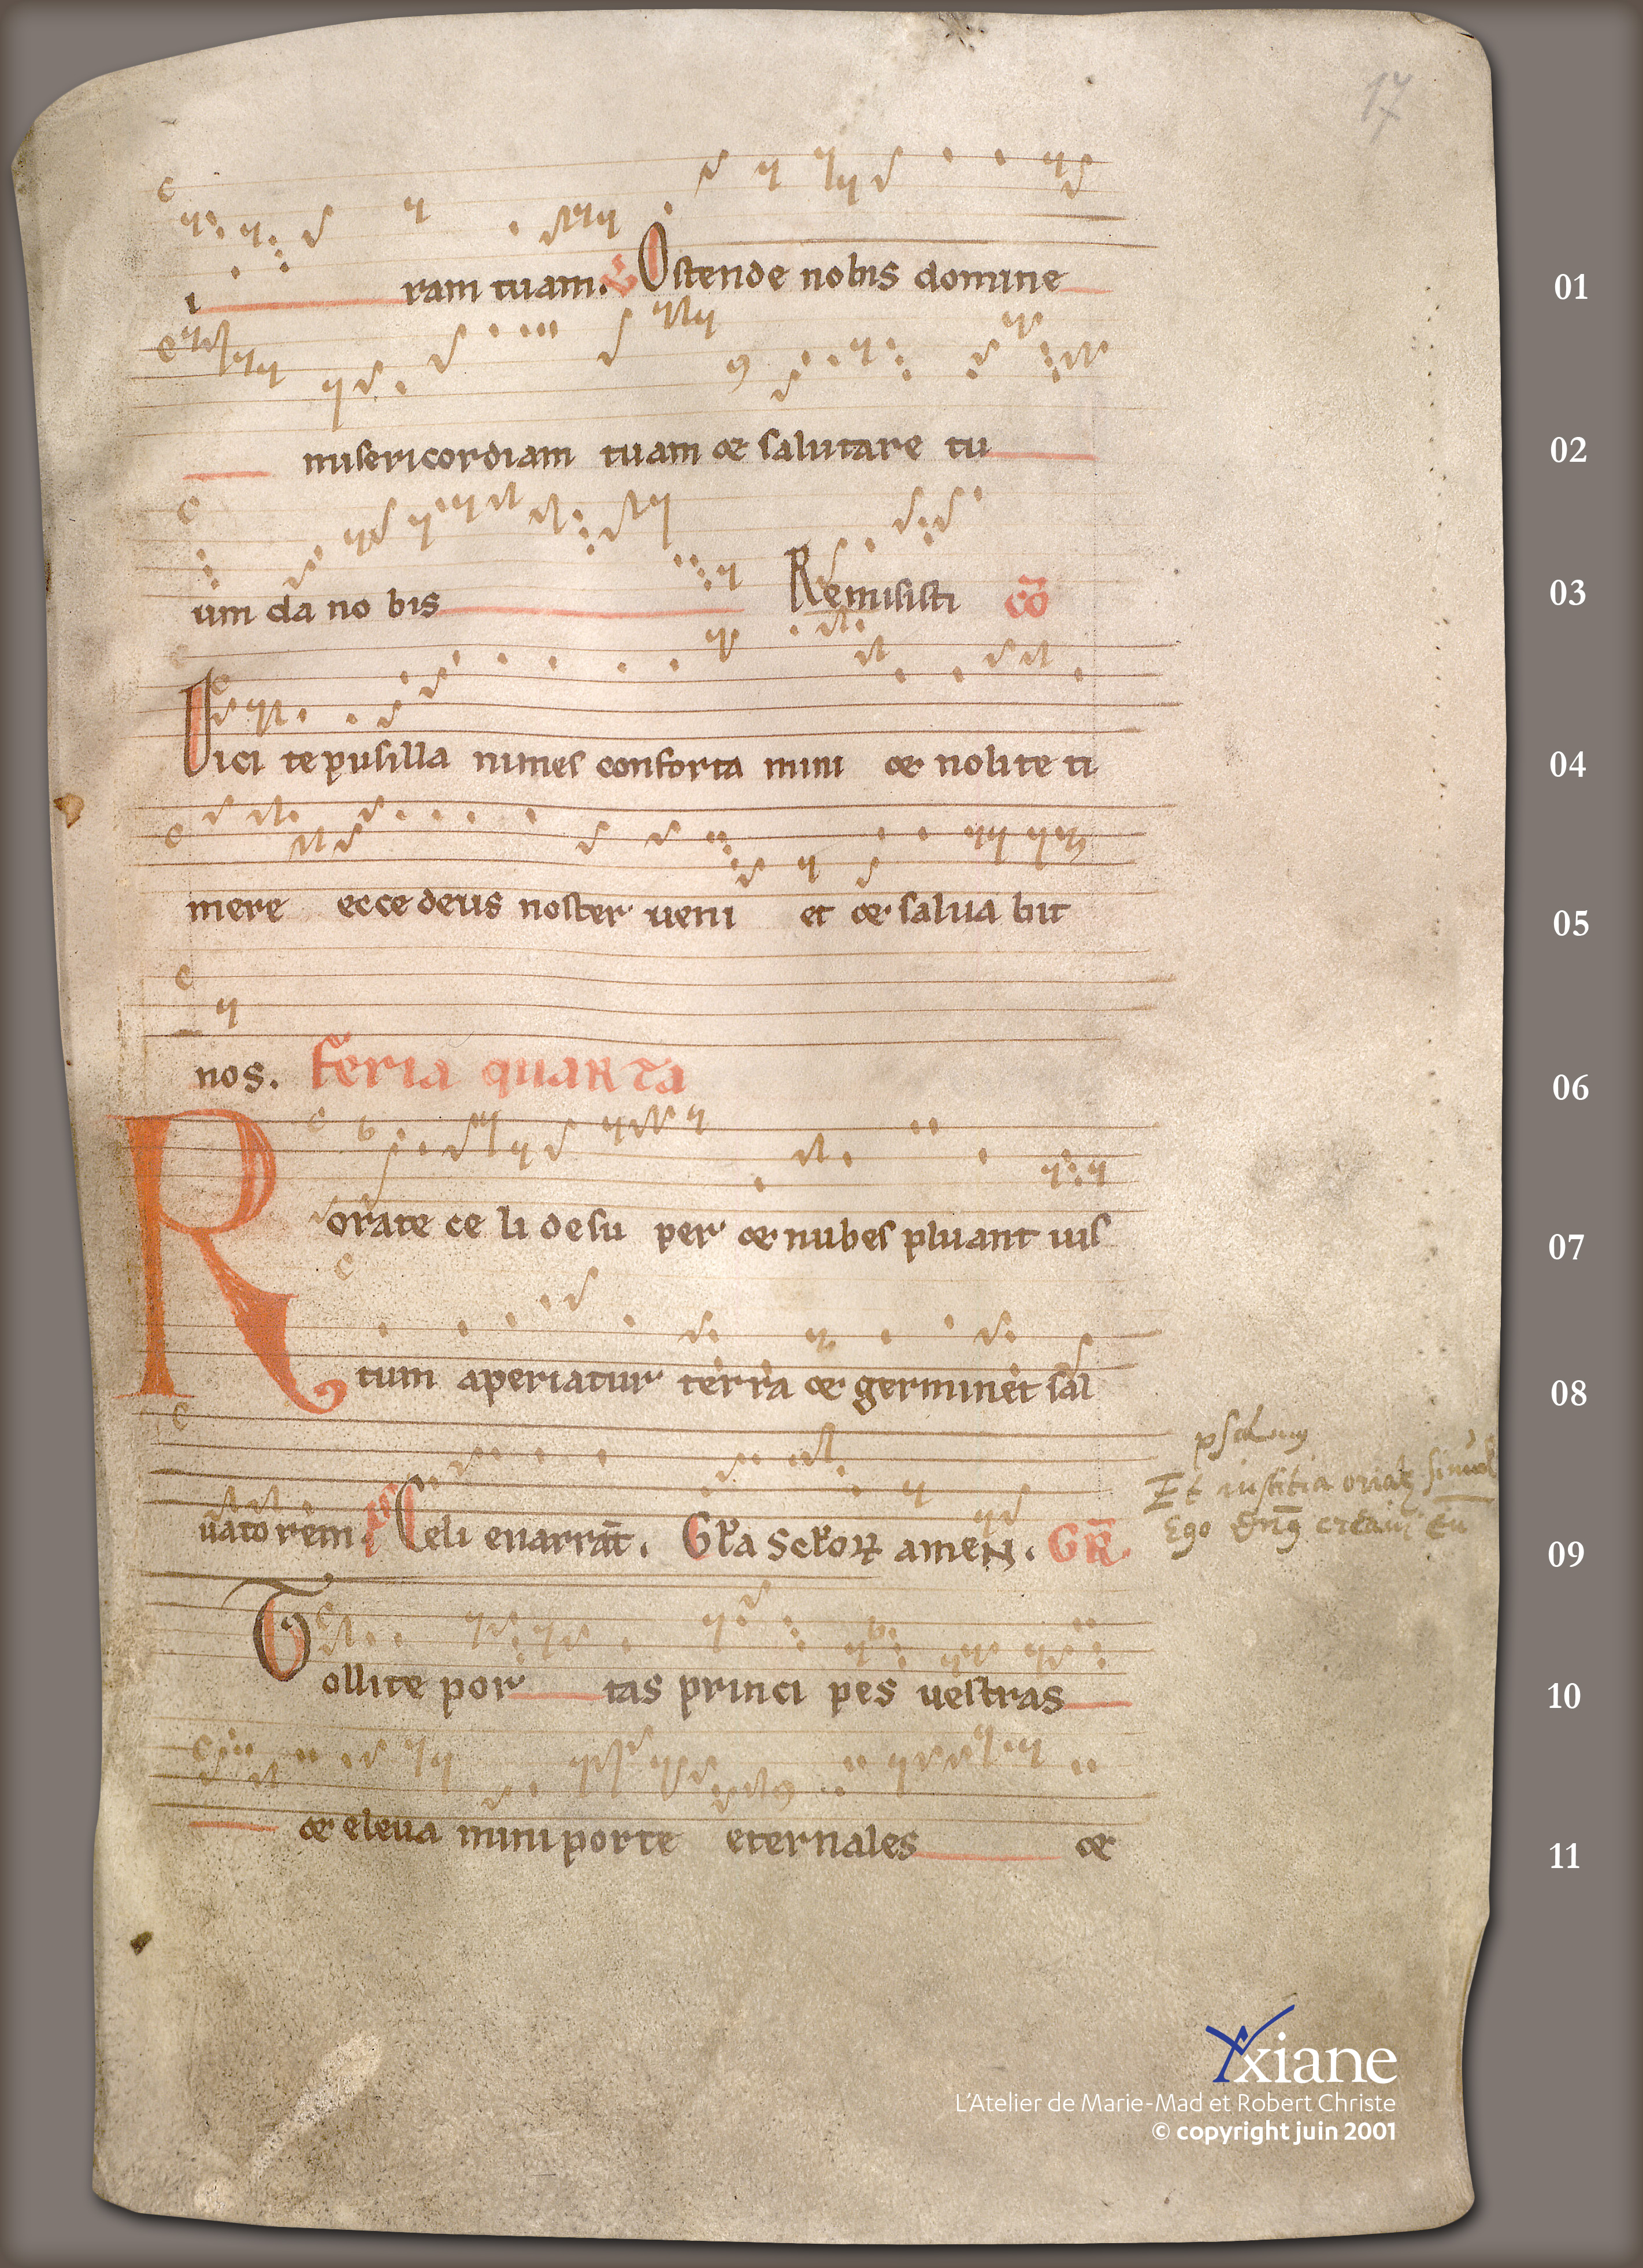 17
i ram tuam. Ostende nobis domine 01
misericordiam tuam et salutare tu 02
um da no bis Remisisti c̄o 03
Dici te pusilla nimes conforta mini et nolite ti 04
mere ecce deus noster ueni et et salua bit 05
nos. feria quarta 06
Rorate ce li desu per et nubes pluant uis 07
tum aperiatur terra et germinet sal 08
psalmus
Et iustitia
uatorem. ps Celi enarrāt. Gl̄a Sclōꝝ amen. GR̄ 09
Tollite por tas princi pes uestras 10
et eleua mini porte eternales et 11
yxiane
L'Atelier de Marie-Mad et Robert Christe
© copyright juin 2001